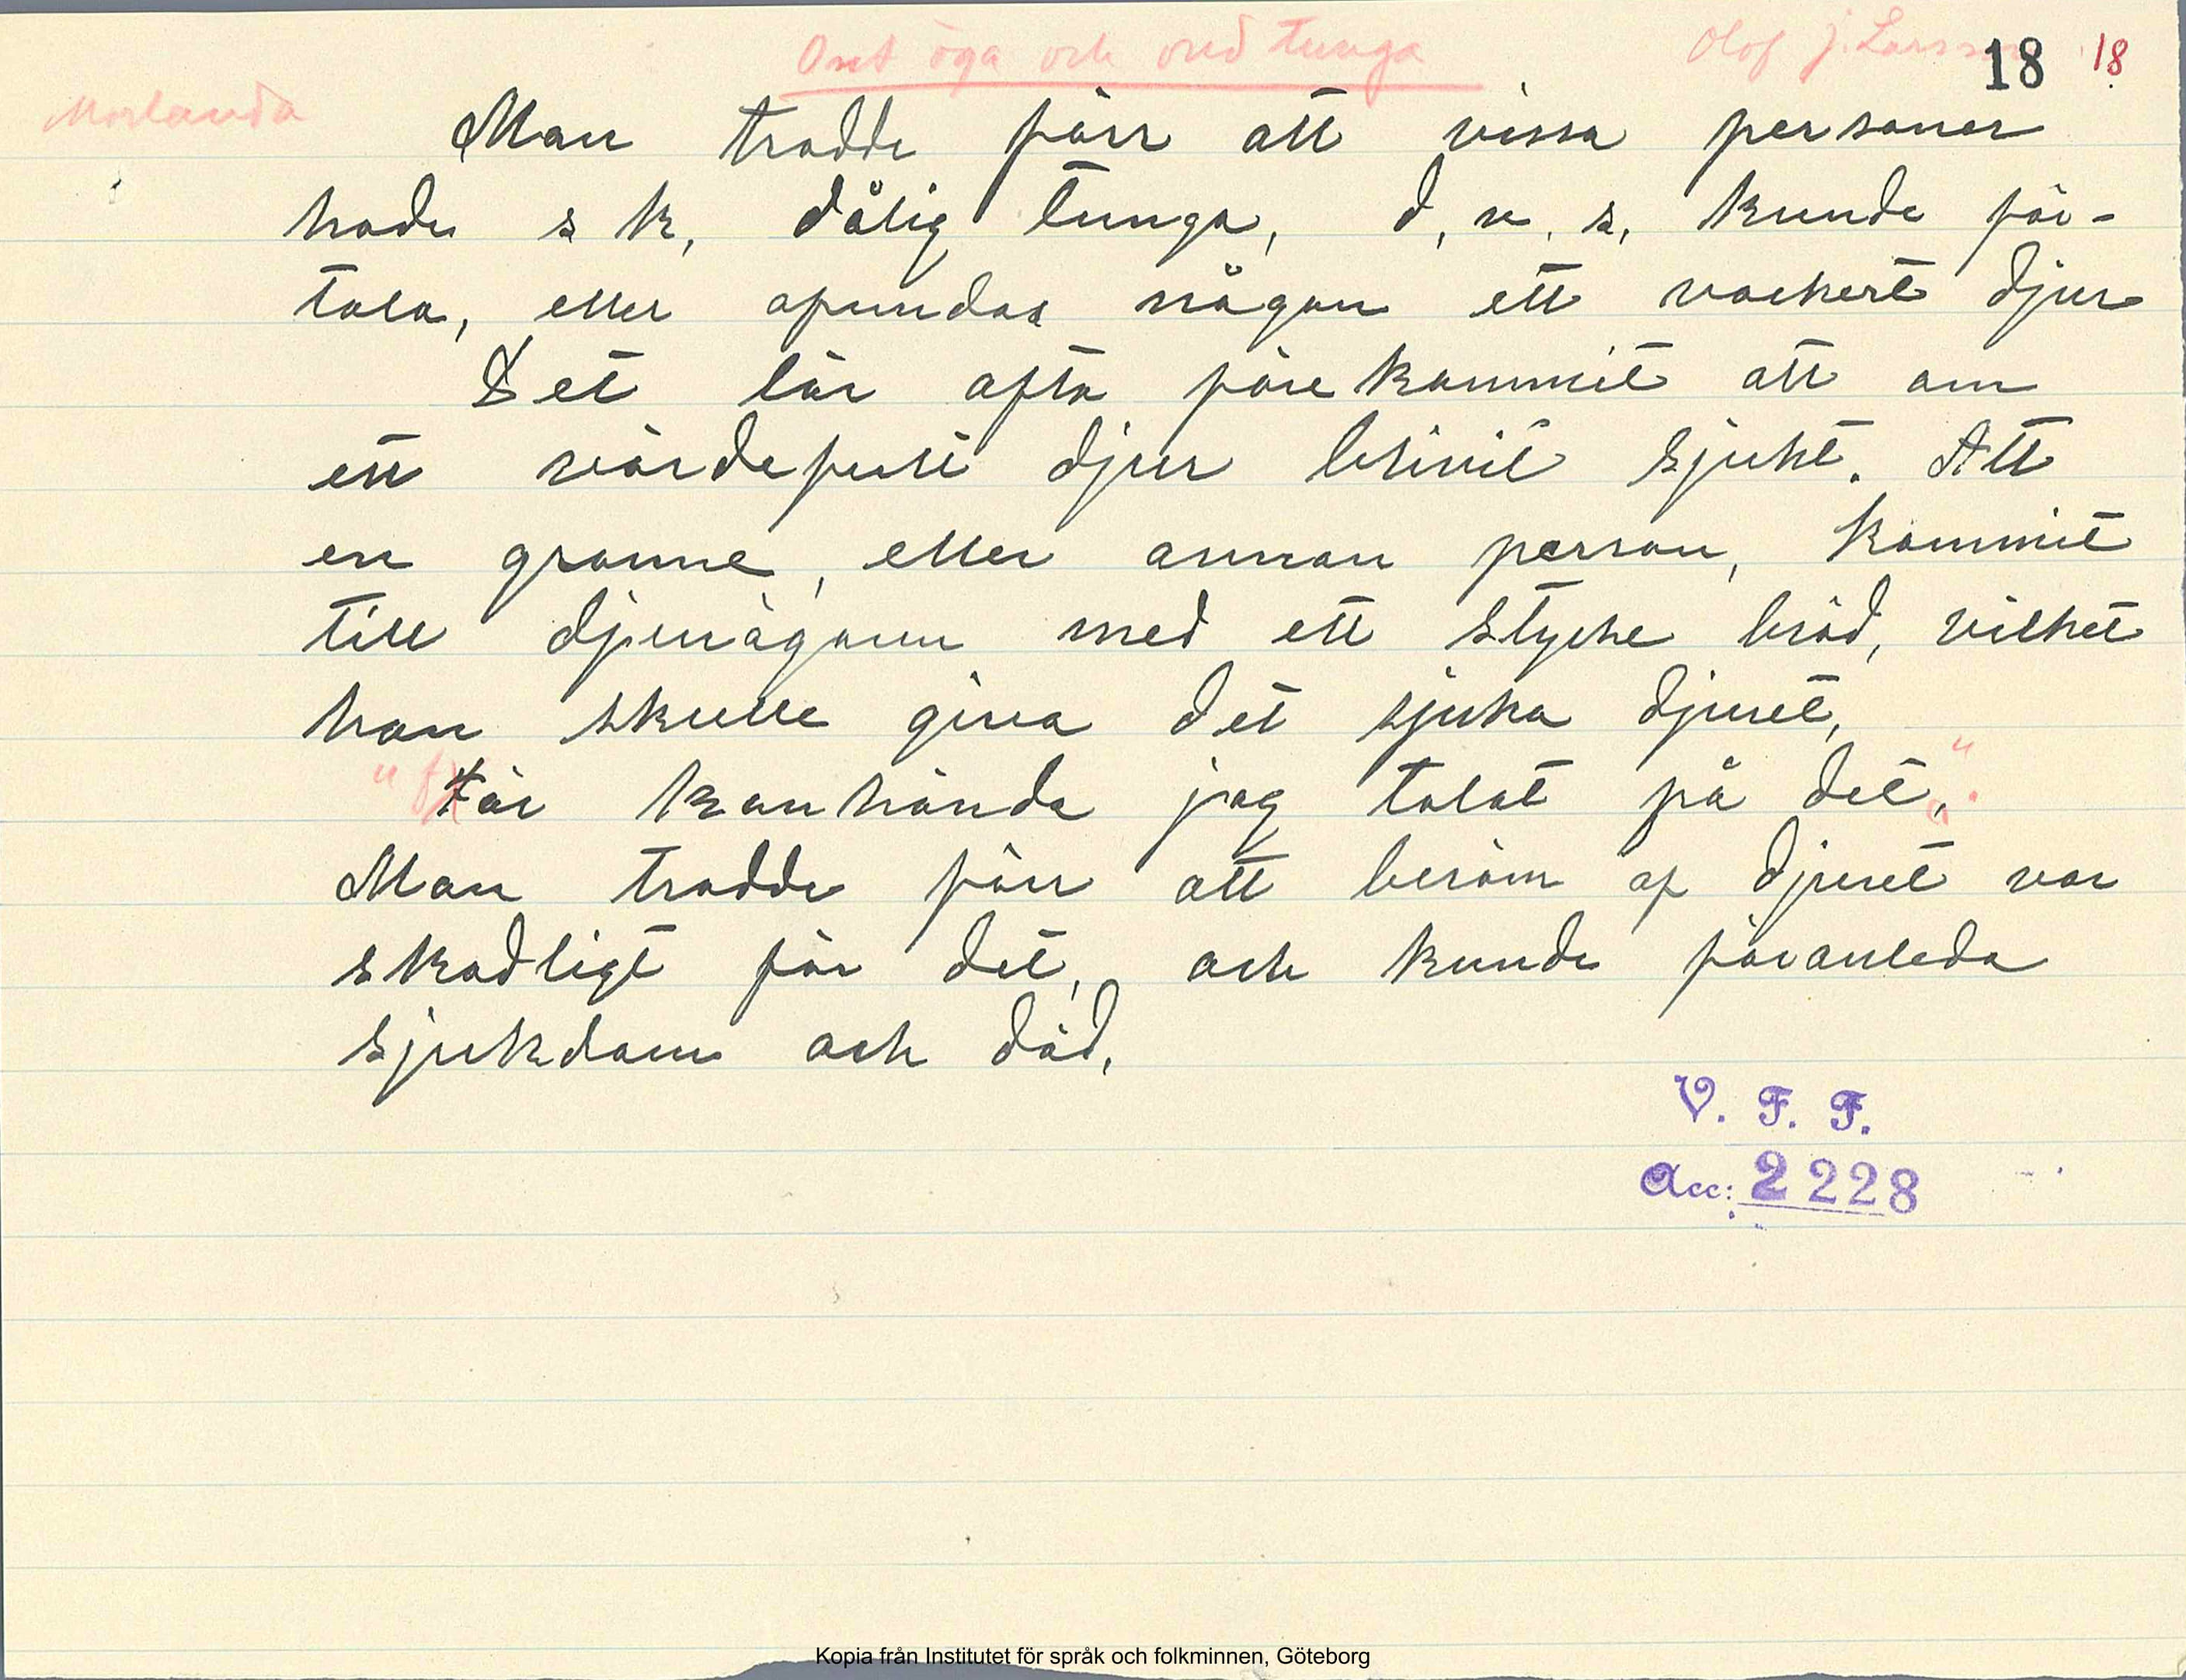 Ont öga och ond tunga
Olof J. Larsson
18 18
Morlanda
Man trodde förr att vissa personer
hade s k, dålig tunga, d, v. s, kunde för-
tala, eller afundas någon ett vackert djur
Det lär ofta förekommit att om
ett värdefullt djur blivit sjukt. Att
en granne, eller annan person, kommit
till djurägaren med ett stycke bröd, vilket
han skulle giva det sjuka djuret,
"för kanhända jag talat på det,".
Man trodde förr att beröm af djuret var
skadligt för det, och kunde föranleda
sjukdom och död,
V. F. F.
Acc: 2228
Kopia från Institutet för språk och folkminnen, Göteborg